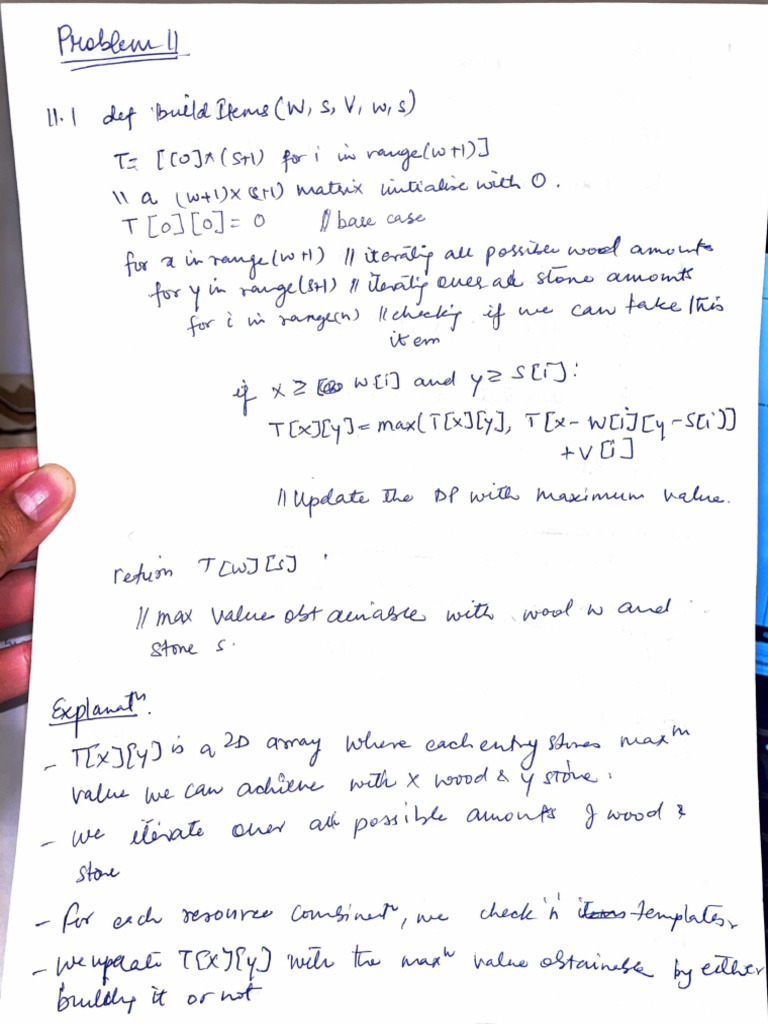 Problem 11
11.1 def buildItems(W, S, V, w, s)
T= [[0]^(S+1) for i in range(w+1)]
\\ a (w+1)x(s+1) matrix initialise with 0.
T[0][0] = 0 // base case
for x in range(w+1) // iterating all possible wood amounts
for y in range(s+1) // iterating over all stone amounts
for i in range(n) // checking if we can take this
item
if x ≥ W[i] and y ≥ S[i]:
T[x][y] = max(T[x][y], T[x-W[i]][y-S[i]]
+V[i]
// Update the DP with maximum value.
return T[w][s]
// max value obtainable with wool w and
stone s.
Explanatn.
- T[x][y] is a 2D array where each entry stores maxm
value we can achieve with x wood & y stone.
- we iterate over all possible amounts of wood &
stone
- for each resource combinatn, we check 'n' templates.
- we update T[x][y] with the maxm value obtainable by either
building it or not